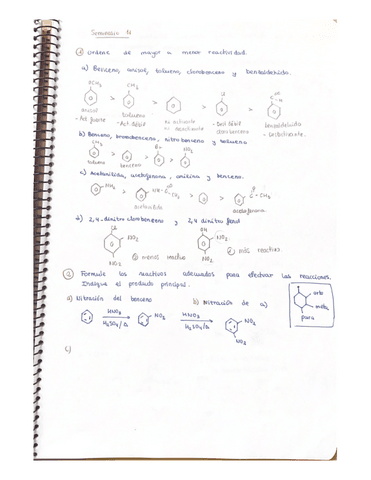 Seminario
① Ordene de mayor a menor reactividad.
a) Benceno, anisol, tolueno, clorobenceno y benzaldehído.
OCH3 CH3 Cl
> > > >
anisol tolueno clorobenceno benzaldehído
- Act fuerte - Act débil - Des débil - Desactivante
b) Benceno, bromobenceno, nitrobenceno y tolueno
CH3 Br NO2
> > >
tolueno benceno
c) Acetanilida, acetofenona, anilina y benceno.
NH2 > NH > >
acetanilida acetofenona
d) 2,4-dinitro clorobenceno y 2,4 dinitro fenol
Cl OH
NO2 NO2
NO2 NO2
menos reactivo más reactivo
② Formule los reactivos adecuados para efectuar las reacciones.
Indique el producto principal.
orto
meta
para
a) Nitración del benceno b) Nitración de a)
HNO3 NO2 HNO3 NO2
H2SO4/Δ H2SO4/Δ
NO2
c)